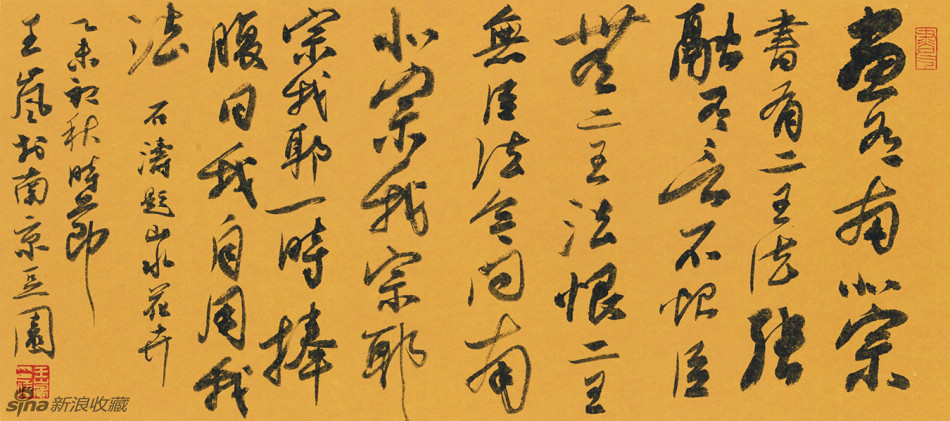 畫有南北宗
書有二王法張
融有言不恨臣
無二王法恨二王
無臣法今問南
北宗我宗耶
宗我耶一時捧
腹曰我自用我
法 石濤題山水花卉
乙未初秋時節
王嵐於南京豆園
sina新浪收藏